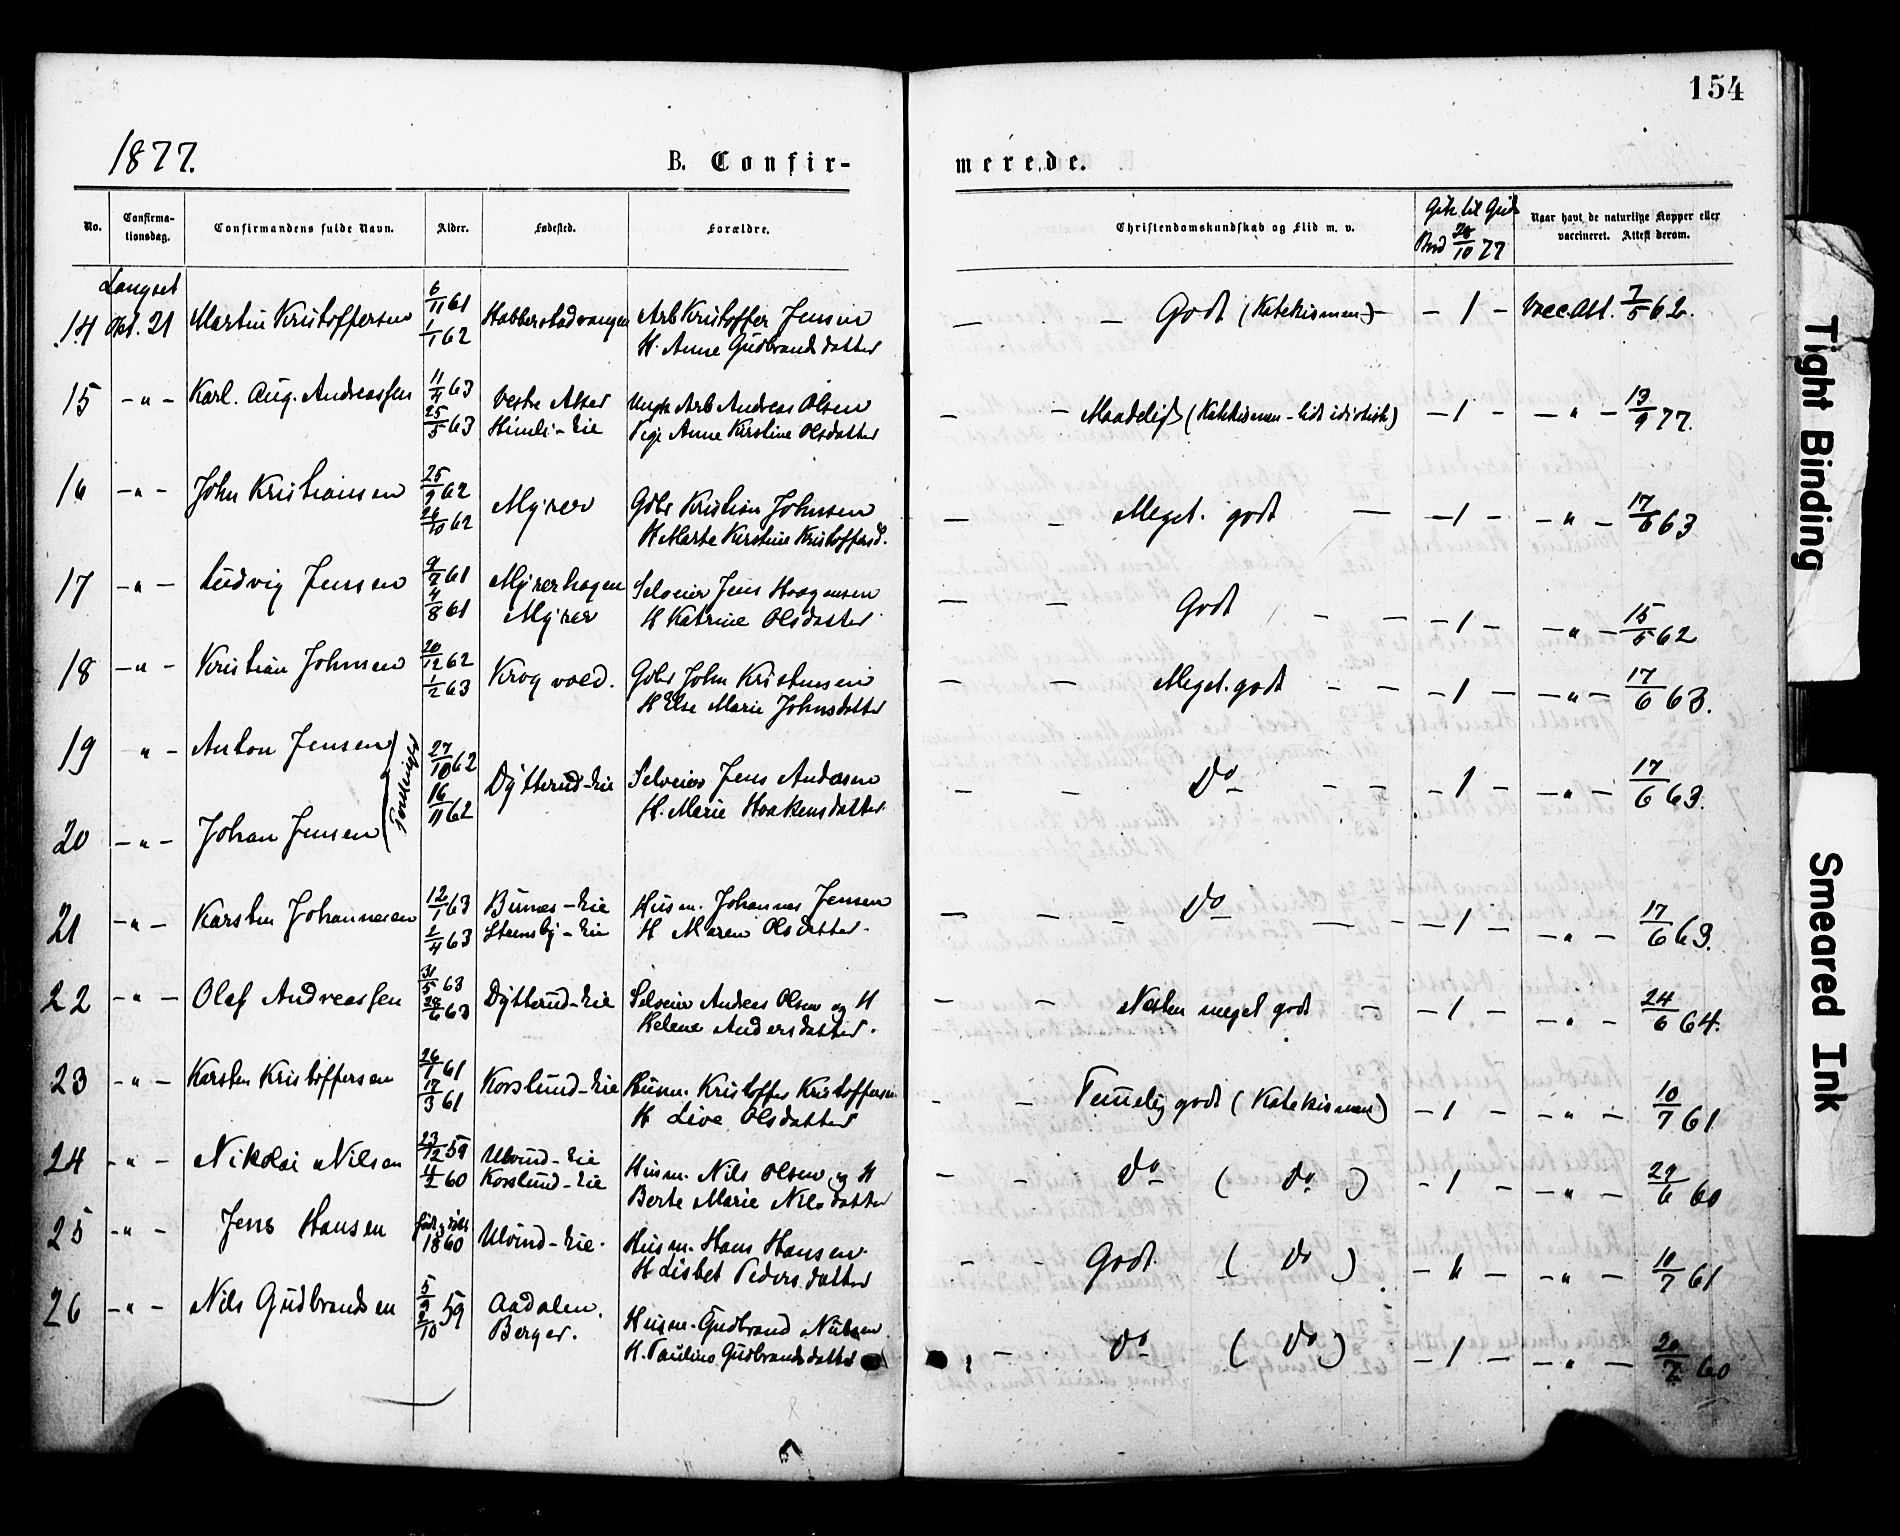 154
1877.
B. Confir-
merede.
No.
Confirma-
tionsdag.
Confirmandens fulde Navn.
Alder.
Fødested.
Forældre.
Christendomskundskab og Flid m. v.
Gik til Guds
Bord 28/10 77
Naar havt de naturlige Kopper eller
vaccineret. Attest derom.
Langset
14 Okt. 21 Martin Kristoffersen 6/11 61 Habberstadvangen Arb Kristoffer Jensen
1/1 62 H. Anne Gudbrandsdatter
— — Godt (Katekismen) — – 1 – Vacc. Att. 7/5 62.
15 – " – Karl. Aug. Andreassen 11/4 63 Vestre Aker Ungk Arb Andreas Olsen
25/5 63 Himli-Eie Pige Anne Kirstine Olsdatter
– – Maadelig (Katekismen – lidt idiotisk) – 1 – – " – 13/9 77.
16 – " – John Kristiansen 25/9 62 Myrer Gdbr Kristian Johnsen
26/10 62 H Marte Kirstine Kristoffersd.
— – Meget godt — – 1 – – " – 17/6 63
17 – " – Ludvig Jensen 9/7 61 Myrerhagen Selveier Jens Haagensen
4/8 61 Myrer H Katrine Olsdatter
— – Godt – – – 1 – – " – 15/5 62
18 – " – Kristian Johnsen 20/12 62 Krogvold. Gdbr John Kristensen
1/2 63 H Else Marie Johnsdatter
— – Meget godt – – – 1 – – " – 17/6 63.
19 " – Anton Jensen 27/10 62 Dytterud-Eie Selveier Jens Andersen
Tvillinger
16/11 62 H. Marie Haakensdatter
20 – " – Johan Jensen
– – Do – – – 1 – – " – 17/6 63.
21 – " – Karsten Johannesen 12/1 63 Bunes-Eie Husm. Johannes Jensen
2/4 63 Steensby-Eie H Maren Olsdatter.
— – – Do — – – 1 – – " – 17/6 63.
22 – " – Olaf Andreassen 31/5 63 Dytterud-Eie Selveier Andreas Olsen og H
28/6 63 Helene Andersdatter.
– – Næsten meget godt – – 1 – – " – 24/6 64.
23 – " – Karsten Kristoffersen 26/1 61 Korslund-Eie Husm. Kristoffer Kristoffersen
17/3 61 H Live Olsdatter
– – Temmelig godt (Katekismen) – 1 – – " – 10/7 61
24 – " – Nikolai Nilsen 23/12 59 Ulvind-Eie Husm. Nils Olsen og H
Korslund-Eie Berte Marie Nilsdatter
– – Do ( Do ) – 1 – – " – 60
25 – " – Jens Hansen
1860 Ulvind-Eie. Husm. Hans Hansen.
H Lisbet Pedersdatter
– – Godt ( Do ) – " – – " – 10/7 61
26 – " – Nils Gudbrandsen 5/9 59 Aadalen. Husm. Gudbrand Nilsen.
2/10 Berger. H. Pauline Gudbrandsdatter
– Do ( Do ) – 1 – – " – 20/7 60
Tight Binding
Smeared Ink